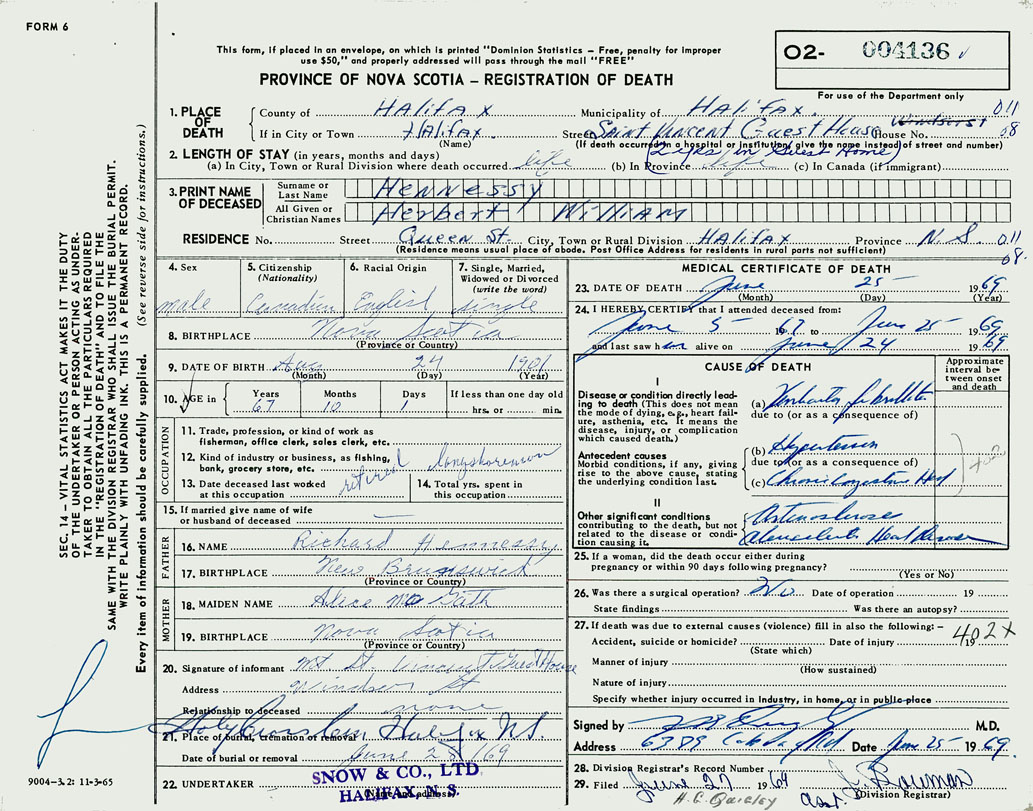 FORM 6
This form, if placed in an envelope, on which is printed "Dominion Statistics – Free, penalty for improper
use $50," and properly addressed will pass through the mail "FREE"
PROVINCE OF NOVA SCOTIA – REGISTRATION OF DEATH
O2- 004136
For use of the Department only
SEC. 14 – VITAL STATISTICS ACT MAKES IT THE DUTY
OF THE UNDERTAKER OR PERSON ACTING AS UNDER-
TAKER TO OBTAIN ALL THE PARTICULARS REQUIRED
IN THE "REGISTRATION OF DEATH" AND TO FILE THE
SAME WITH THE DIVISION REGISTRAR WHO SHALL ISSUE THE BURIAL PERMIT.
WRITE PLAINLY WITH UNFADING INK. THIS IS A PERMANENT RECORD.
Every item of information should be carefully supplied. (See reverse side for instructions.)
1. PLACE OF DEATH
County of Halifax Municipality of Halifax 011
If in City or Town Halifax Street Saint Vincent Guest House House No. 08
(Name) (If death occurred in a hospital or institution, give the name instead of street and number)
2. LENGTH OF STAY (in years, months and days) in Guest Home)
(a) In City, Town or Rural Division where death occurred life (b) In Province life (c) In Canada (if immigrant)
3. PRINT NAME OF DECEASED
Surname or Last Name Hennessy
All Given or Christian Names Herbert William
RESIDENCE No. Street Queen St. City, Town or Rural Division Halifax Province N S 011
(Residence means usual place of abode. Post Office Address for residents in rural parts not sufficient) 08.
4. Sex
male
5. Citizenship
(Nationality)
Canadian
6. Racial Origin
English
7. Single, Married,
Widowed or Divorced
(write the word)
single
8. BIRTHPLACE Nova Scotia
(Province or Country)
9. DATE OF BIRTH Aug 24 1901
(Month) (Day) (Year)
10. AGE in Years 67 Months 10 Days 1 If less than one day old
hrs. or min.
OCCUPATION
11. Trade, profession, or kind of work as
fisherman, office clerk, sales clerk, etc.
12. Kind of industry or business, as fishing,
bank, grocery store, etc. longshoreman
13. Date deceased last worked
at this occupation retired
14. Total yrs. spent in
this occupation
15. If married give name of wife
or husband of deceased —
FATHER
16. NAME Richard Hennessy
17. BIRTHPLACE New Brunswick
(Province or Country)
MOTHER
18. MAIDEN NAME Alice
19. BIRTHPLACE Nova Scotia
(Province or Country)
20. Signature of informant Mt St. Vincent Guest House
Address Windsor St
Relationship to deceased none
21. Place of burial, cremation or removal Holy Cross Halifax NS.
Date of burial or removal June 28/69
22. UNDERTAKER SNOW & CO., LTD
HALIFAX, N. S.
(Name and address)
9004-3.2: 11-3-65
MEDICAL CERTIFICATE OF DEATH
23. DATE OF DEATH June 25 1969
(Month) (Day) (Year)
24. I HEREBY CERTIFY that I attended deceased from:
June 5 1967 to June 25 1969
and last saw him alive on June 24 1969
CAUSE OF DEATH
Approximate
interval be-
tween onset
and death
I
Disease or condition directly lead-
ing to death (This does not mean
the mode of dying, e.g., heart fail-
ure, asthenia, etc. It means the
disease, injury, or complication
which caused death.)
(a)
due to (or as a consequence of)
Antecedent causes
Morbid conditions, if any, giving
rise to the above cause, stating
the underlying condition last.
(b) Hypertension
due to (or as a consequence of)
(c) Chronic Congestive
II
Other significant conditions
contributing to the death, but not
related to the disease or condi-
tion causing it.
Heart Disease
25. If a woman, did the death occur either during
pregnancy or within 90 days following pregnancy?
(Yes or No)
26. Was there a surgical operation? No Date of operation 19
State findings Was there an autopsy?
27. If death was due to external causes (violence) fill in also the following: –
402X
Accident, suicide or homicide? Date of injury 19
(State which)
Manner of injury
(How sustained)
Nature of injury
Specify whether injury occurred in industry, in home, or in public place
Signed by M.D.
Address 6389 Date June 25 1969.
28. Division Registrar's Record Number
29. Filed June 27 1969
(Division Registrar)
H. C. Quigley